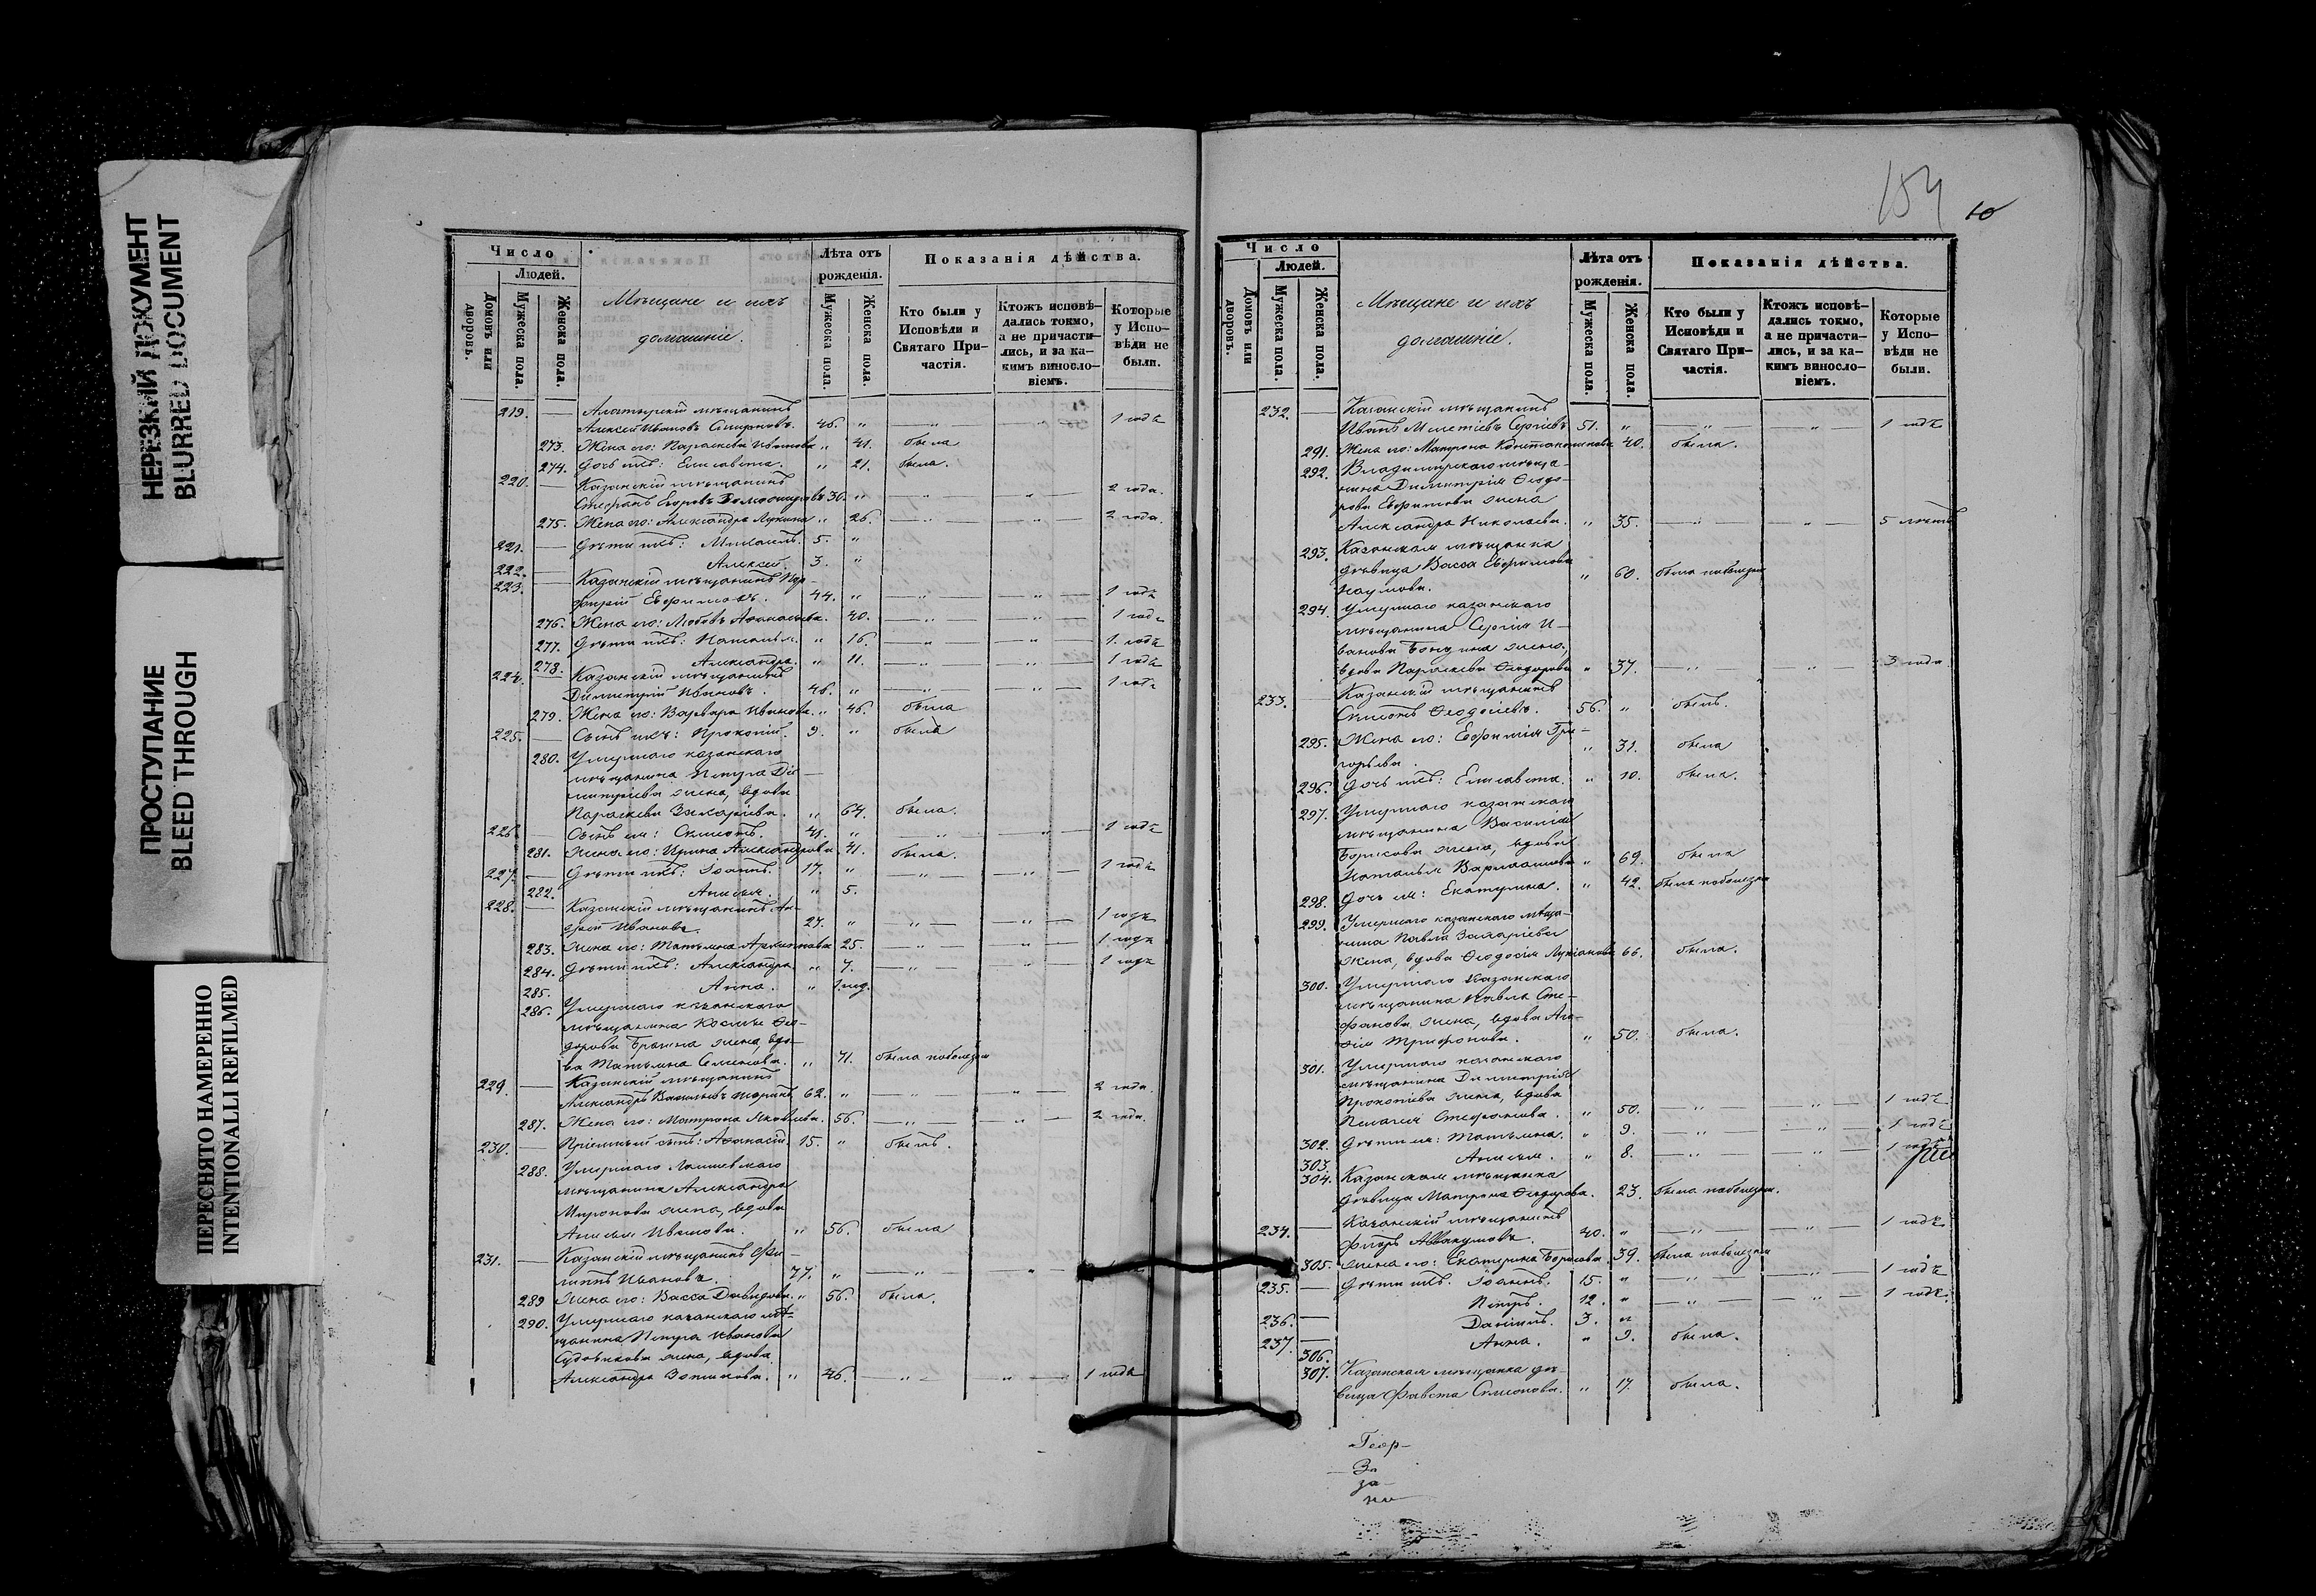 НЕРЕЗКИЙ ДОКУМЕНТ
BLURRED DOCUMENT
ПРОСТУПАНИЕ
BLEED THROUGH
ПЕРЕСНЯТО НАМЕРЕННО
INTENTIONALLI REFILMED
Число
Людей.
Домовъ или дворовъ.
Мужеска пола.
Женска пола.
Мѣщане и ихъ
домашніе.
Лѣта отъ рожденія.
Мужеска пола.
Женска пола.
Показанія дѣйства.
Кто были у Исповѣди и Святаго Причастія.
Ктожъ исповѣдались токмо, а не причастились, и за какимъ винословіемъ.
Которые у Исповѣди не были.
219. — Алатырскій мѣщанинъ
Алексѣй Ивановъ Смирновъ. 46. " — " — " 1 годъ
273. Жена его: Параскева Иванова " 41. была
274. Дочь ихъ: Елисавета. " 21. была.
220. — Казанскій мѣщанинъ
Стефанъ Егоровъ 30. " — " — " — 2 года.
275. Жена его: Александра Лукина " 26. — " — " — 2 года.
221. — Дѣти ихъ: Михаилъ. 5. "
222. — Алексѣй. 3. "
223. — Казанскій мѣщанинъ Пор-
фирій Ефимовъ. 44. " — " — " — 1 годъ
276. Жена его: Любовь Афанасьева. 40. — " — " — 1 годъ
277. Дѣти ихъ: Наталья. " 16. — " — " — 1 годъ
278. Александра. " 11. — " — " — 1 годъ
224. Казанскій мѣщанинъ
Димитрій Ивановъ. 46. " — " — " — 1 годъ
279. Жена его: Варвара Иванова. " 46. была
225. — Сынъ ихъ: Прокопій. 9. " былъ
280. Умершаго казанскаго
мѣщанина Петра Ди-
митріева жена, вдова
Параскева Захаріева. " 64. была.
226. — Сынъ ея: Симеонъ. 41. " — " — " — 1 годъ
281. Жена его: Ирина Александрова 41. была.
227. — Дѣти ихъ: Іоаннъ. 17. " — " — " — 1 годъ
282. Анисья. " 5.
228. — Казанскій мѣщанинъ
Ивановъ. 27. " — " — " — 1 годъ
283. Жена его: Татьяна Архиппова 25. — " — " — 1 годъ
284. Дѣти ихъ: Александра. " 7. — " — " — 1 годъ
285. Анна. " 1 год.
286. Умершаго казанскаго
мѣщанина Космы Ѳео-
дорова жена, вдо-
ва Татьяна Семенова. " 71. была
229. — Казанскій мѣщанинъ
Александръ Васильевъ 62. " — " — " — 2 года.
287. Жена его: Матрона Яковлева. 56. — " — " — 2 года.
230. — Пріемный сынъ: Аѳанасій. 15. " былъ.
288. Умершаго Лаишевскаго
мѣщанина Александра
Миронова жена, вдова
Анисья Иванова. " 56. была
231. — Казанскій мѣщанинъ Фи-
липпъ Ивановъ. 77. " — " — " —
289 Жена его: Васса Давидова. " 56. была.
290. Умершаго казанскаго мѣ-
щанина Петра Иванова
жена, вдова
Александра " 46. — " — " — 1 годъ
154
10
Число
Людей.
Домовъ или дворовъ.
Мужеска пола.
Женска пола.
Мѣщане и ихъ
домашніе.
Лѣта отъ рожденія.
Мужеска пола.
Женска пола.
Показанія дѣйства.
Кто были у Исповѣди и Святаго Причастія.
Ктожъ исповѣдались токмо, а не причастились, и за какимъ винословіемъ.
Которые у Исповѣди не были.
232. Казанскій мѣщанинъ
Иванъ Мелетіевъ Сергіевъ 51. " " " 1 годъ
291. Жена его: Матрона Константинова 40. была.
292. Владимірскаго мѣща-
нина Димитрія Ѳеодо-
рова Ефимова жена
Александра Николаева. " 35. — " — " — 5 лѣтъ
293. Казанская мѣщанка
дѣвица Васса Ефимова
Наумова. " 60. была
294. Умершаго казанскаго
мѣщанина Сергія И-
ванова жена,
вдова Параскева Ѳеодорова " 37. — " — " — 3 года
233. Казанскій мѣщанинъ
Симеонъ Ѳеодосіевъ. 56. " былъ.
295. Жена его: Евфимія Гри-
горьева. " 31. была
296. Дочь ихъ: Елисавета. " 10. была.
297. Умершаго казанскаго
мѣщанина Василія
Борисова жена, вдова
Наталья Варлаамова " 69. была
298. Дочь ея: Екатерина. " 42. была
299. Умершаго казанскаго мѣща-
нина Павла Захаріева
жена, вдова Ѳеодосія Лукіанова 66. была.
300. Умершаго казанскаго
мѣщанина Павла Сте-
фанова жена, вдова Ага-
ѳія Трифонова. " 50. была.
301. Умершаго казанскаго
мѣщанина Димитрія
Прокопіева жена, вдова
Пелагея Стефанова. " 50. — " — " — 1 годъ
302. Дѣти ея: Татьяна. " 9. — " — " — 1 годъ
303. Анисья. " 8. — " — " — 1 годъ
304. Казанская мѣщанка
дѣвица Матрена Ѳеодорова. 23. была
234. — Казанскій мѣщанинъ
Флоръ Аввакумовъ. 40. " — " — " — 1 годъ
305. Жена его: Екатерина Борисова. 39. была
235. — Дѣти ихъ: Іоаннъ. 15. " — " — " — 1 годъ
Петръ. 12. " — " — " — 1 годъ.
236. — Даніилъ. 3. "
237. — Анна. " 9. была.
306.
307. Казанская мѣщанка дѣ-
вица Фавста Симеонова. " 17. была.
Геор-
За
за-